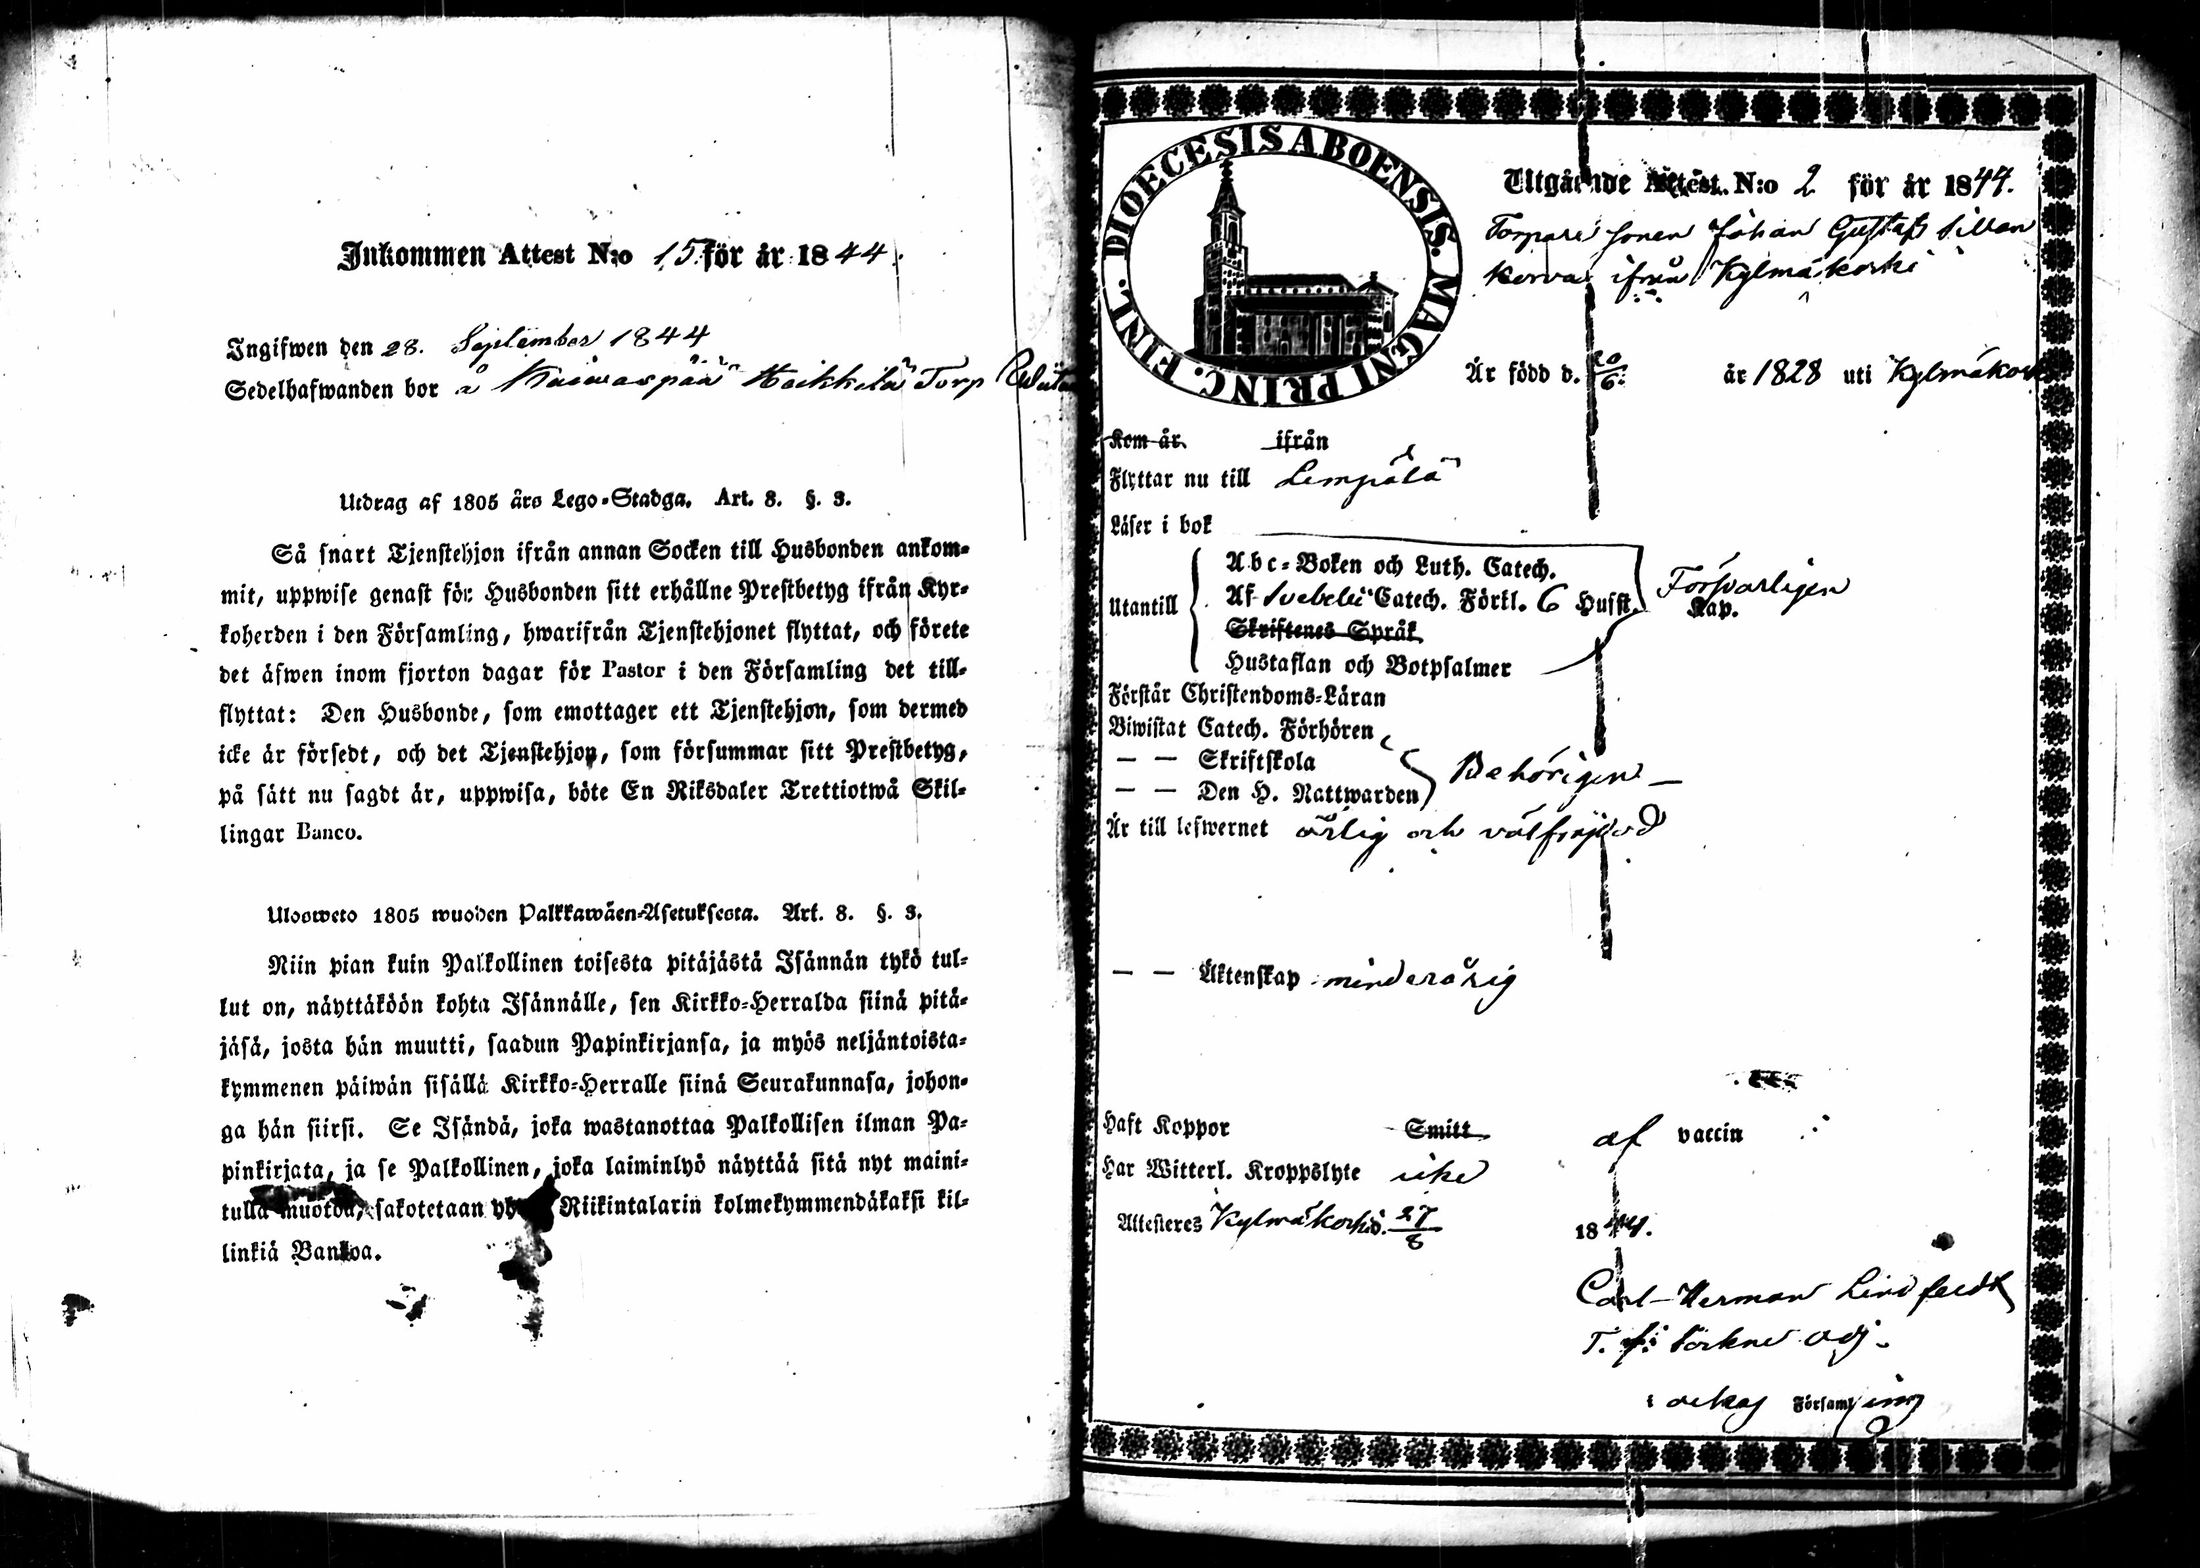 Inkommen Attest N:o 15 för år 1844.
Ingifwen den 28. September 1844
Sedelhafwanden bor å Heikkilä Torp
Utdrag af 1805 års Lego-Stadga. Art. 8. §. 3.
Så snart Tjenstehjon ifrån annan Socken till Husbonden ankom-
mit, uppwise genast för Husbonden sitt erhållne Prestbetyg ifrån Kyr-
koherden i den Församling, hwarifrån Tjenstehjonet flyttat, och förete
det äfwen inom fjorton dagar för Pastor i den Församling det till-
flyttat: Den Husbonde, som emottager ett Tjenstehjon, som dermed
icke är försedt, och det Tjenstehjon, som försummar sitt Prestbetyg,
på sätt nu sagdt är, uppwisa, böte En Riksdaler Trettiotwå Skil-
lingar Banco.
Ulosweto 1805 wuoden Palkkawäen-Asetuksesta. Art. 8. §. 3.
Niin pian kuin Palkollinen toisesta pitäjästä Isännän tykö tul-
lut on, näyttäköön kohta Isännälle, sen Kirkko-Herralda siinä pitä-
jäsä, josta hän muutti, saadun Papinkirjansa, ja myös neljäntoista-
kymmenen päiwän sisällä Kirkko-Herralle siinä Seurakunnasa, johon-
ga hän siirsi. Se Isändä, joka wastanottaa Palkollisen ilman Pa-
pinkirjata, ja se Palkollinen, joka laiminlyö näyttää sitä nyt maini-
tulla muotoa, sakotetaan Riikintalarin kolmekymmendäkaksi kil-
linkiä Bankoa.
DIOECESIS ABOENSIS. MAGNI PRINC. FINL.
Utgående Attest N:o 2 för år 1844.
Torpare sonen Johan Gustaf Sillan
korva ifrån Kylmäkoski
Är född d. 20/6. år 1828 uti Kylmäkoski
Kom år ifrån
Flyttar nu till Lempälä
Läser i bok
Utantill
Abc-Boken och Luth. Catech.
Af Svebelii Catech. Förkl. 6 Husst. Kap.
Försvarligen
Skriftenes Språk
Hustaflan och Botpsalmer
Förstår Christendoms-Läran
Biwistat Catech. Förhören
— — Skriftskola
Behörigen —
— — Den H. Nattwarden
Är till lefwernet ärlig och välfrejdad
— — Äktenskap minderårig
Haft Koppor Smitt af vaccin
Har Witterl. Kroppslyte icke
Attesteres Kylmäkoski d. 27/8 1844.
Carl Herman Lindfeldt
T. f. Sockne adj.
i Församling